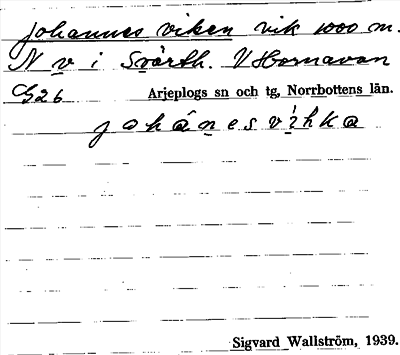 Johannesviken vik 1000 m.
N v i Svärth. V Hornavan
G26 Arjeplogs sn och tg, Norrbottens län.
johânesvìhka
Sigvard Wallström, 1939.